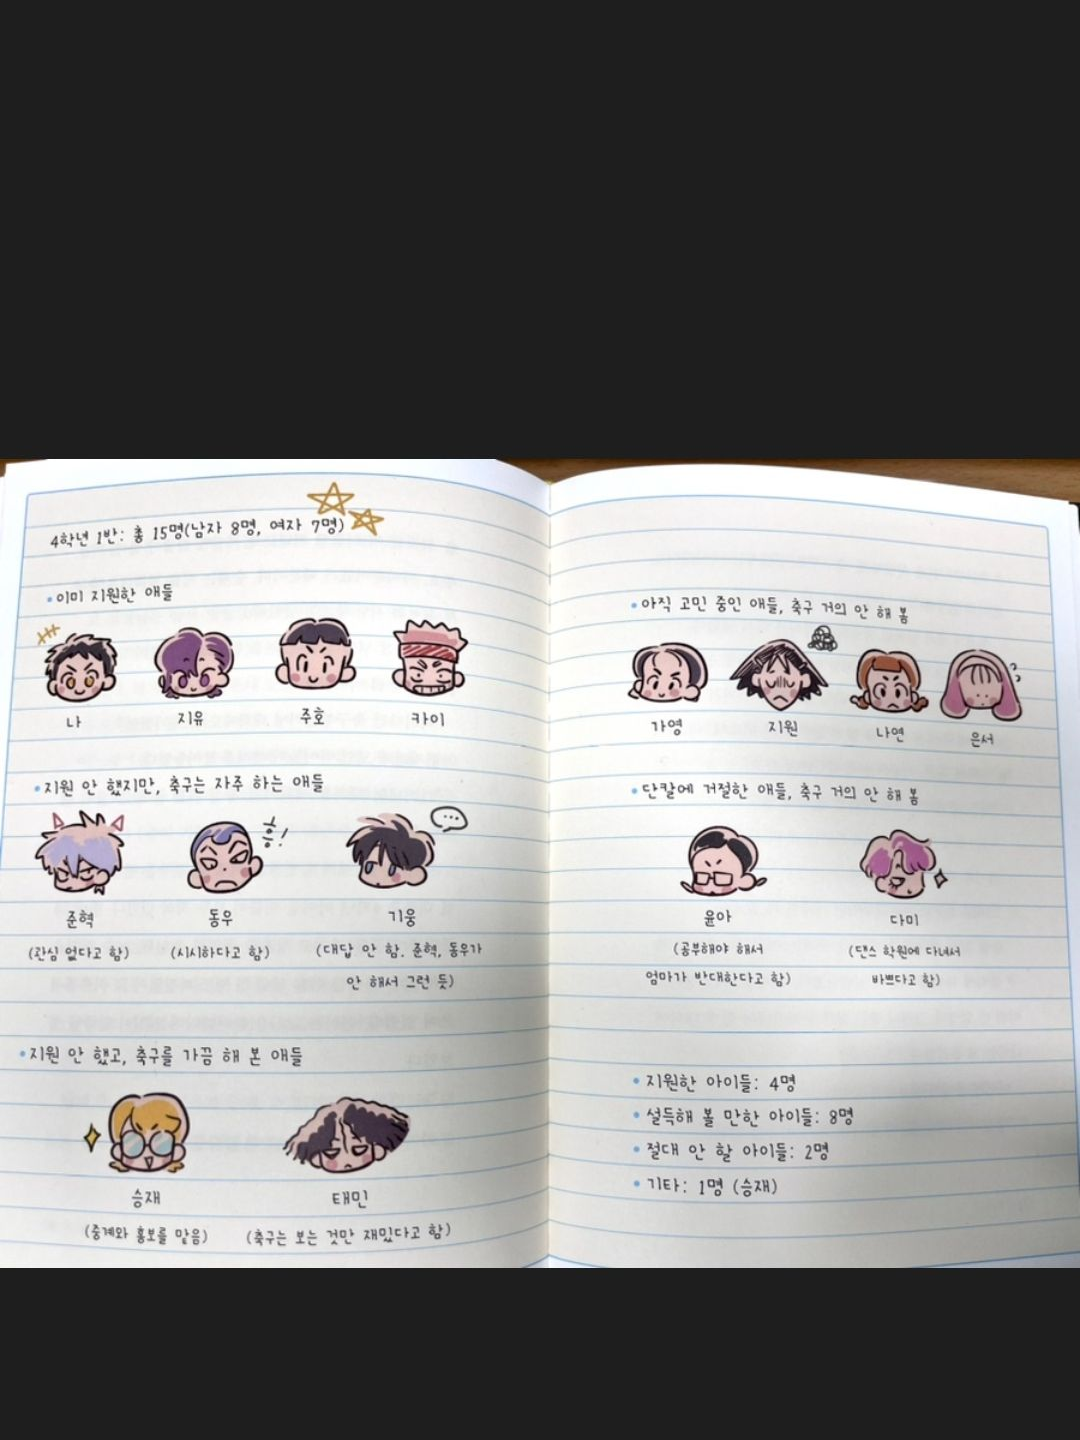 4학년 1반: 총 15명(남자 8명, 여자 7명)
• 이미 지원한 애들
나
지유
주호
카이
• 지원 안 했지만, 축구는 자주 하는 애들
흥!
준혁
동우
기웅
(관심 없다고 함)
(시시하다고 함)
(대답 안 함. 준혁, 동우가
안 해서 그런 듯)
• 지원 안 했고, 축구를 가끔 해 본 애들
승재
태민
(중계와 홍보를 맡음)
(축구는 보는 것만 재밌다고 함)
• 아직 고민 중인 애들, 축구 거의 안 해 봄
가영
지원
나연
은서
• 단칼에 거절한 애들, 축구 거의 안 해 봄
윤아
다미
(공부해야 해서
엄마가 반대한다고 함)
(댄스 학원에 다녀서
바쁘다고 함)
• 지원한 아이들: 4명
• 설득해 볼 만한 아이들: 8명
• 절대 안 할 아이들: 2명
• 기타: 1명 (승재)